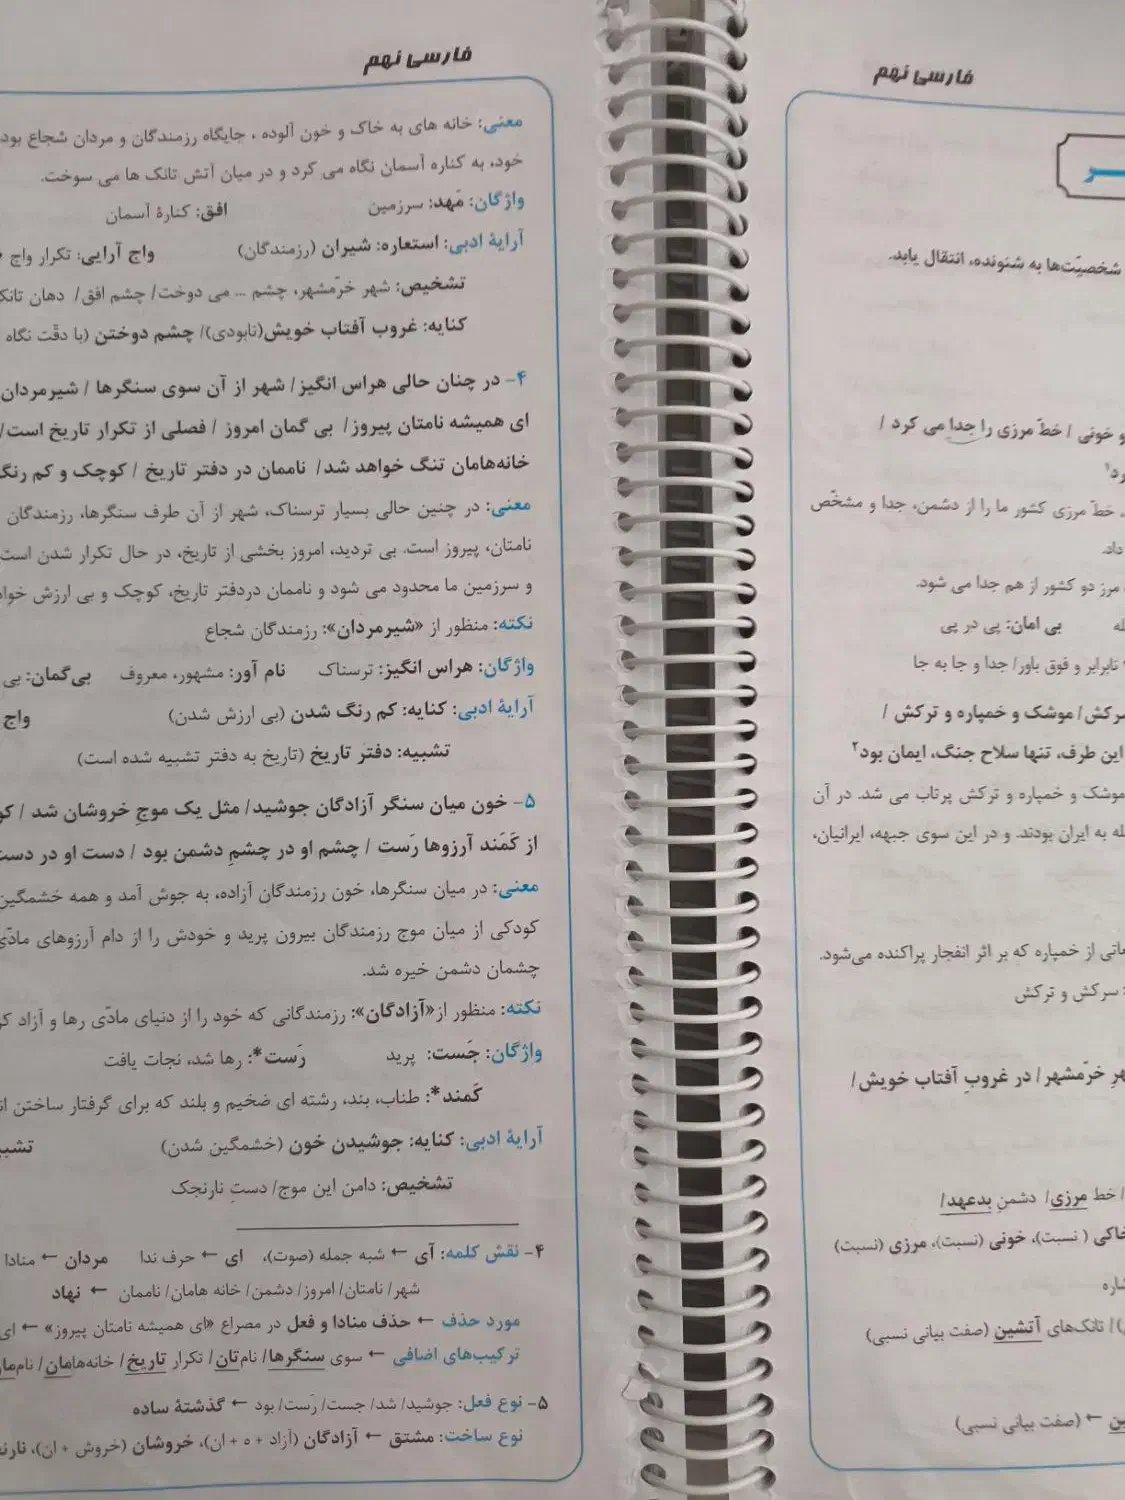 فارسی نهم
ـر
شخصیّت‌ها به شنونده، انتقال یابد.
و خونی / خطّ مرزی را جدا می کرد /
رد۱
خطّ مرزی کشور ما را از دشمن، جدا و مشخّص
داد.
مرز دو کشور از هم جدا می شود.
له بی امان: پی در پی
نابرابر و فوق باور/ جدا و جا به جا
سرکش/ موشک و خمپاره و ترکش /
این طرف، تنها سلاح جنگ، ایمان بود۲
موشک و خمپاره و ترکش پرتاب می شد. در آن
له به ایران بودند. و در این سوی جبهه، ایرانیان،
عاتی از خمپاره که بر اثر انفجار پراکنده می‌شود.
: سرکش و ترکش
هرِ خرّمشهر/ در غروبِ آفتاب خویش/
/ خط مرزی/ دشمنِ بدعهد/
خاکی ( نسبت)، خونی (نسبت)، مرزی (نسبت)
شاره
)/ تانک‌های آتشین (صفت بیانی نسبی)
ین ← (صفت بیانی نسبی)
فارسی نهم
معنی: خانه های به خاک و خون آلوده ، جایگاه رزمندگان و مردان شجاع بود
خود، به کناره آسمان نگاه می کرد و در میان آتش تانک ها می سوخت.
واژگان: مَهد: سرزمین افق: کنارۀ آسمان
آرایۀ ادبی: استعاره: شیران (رزمندگان) واج آرایی: تکرار واج
تشخیص: شهر خرّمشهر، چشم ... می دوخت/ چشم افق/ دهان تانک
کنایه: غروب آفتاب خویش(نابودی)/ چشم دوختن (با دقّت نگاه
۴- در چنان حالی هراس انگیز/ شهر از آن سوی سنگرها / شیرمردان
ای همیشه نامتان پیروز/ بی گمان امروز / فصلی از تکرار تاریخ است/
خانه‌هامان تنگ خواهد شد/ ناممان در دفتر تاریخ / کوچک و کم رنگ
معنی: در چنین حالی بسیار ترسناک، شهر از آن طرف سنگرها، رزمندگان
نامتان، پیروز است. بی تردید، امروز بخشی از تاریخ، در حال تکرار شدن است
و سرزمین ما محدود می شود و ناممان دردفتر تاریخ، کوچک و بی ارزش خواه
نکته: منظور از «شیرمردان»: رزمندگان شجاع
واژگان: هراس انگیز: ترسناک نام آور: مشهور، معروف بی‌گمان: بی
آرایۀ ادبی: کنایه: کم رنگ شدن (بی ارزش شدن) واج
تشبیه: دفتر تاریخ (تاریخ به دفتر تشبیه شده است)
۵- خون میان سنگر آزادگان جوشید/ مثل یک موجِ خروشان شد / کو
از کَمَند آرزوها رَست / چشم او در چشمِ دشمن بود / دست او در دست
معنی: در میان سنگرها، خون رزمندگان آزاده، به جوش آمد و همه خشمگین
کودکی از میان موج رزمندگان بیرون پرید و خودش را از دام آرزوهای مادّی
چشمان دشمن خیره شد.
نکته: منظور از«آزادگان»: رزمندگانی که خود را از دنیای مادّی رها و آزاد کر
واژگان: جَست: پرید رَست*: رها شد، نجات یافت
کَمند*: طناب، بند، رشته ای ضخیم و بلند که برای گرفتار ساختن ان
آرایۀ ادبی: کنایه: جوشیدن خون (خشمگین شدن) تشبی
تشخیص: دامن این موج/ دستِ نارنجک
۴- نقش کلمه: آی ← شبه جمله (صوت)، ای ← حرف ندا مردان ← منادا
شهر/ نامتان/ امروز/ دشمن/ خانه هامان/ ناممان ← نهاد
مورد حذف ← حذف منادا و فعل در مصراع «ای همیشه نامتان پیروز» ← ای
ترکیب‌های اضافی ← سوی سنگرها/ نام‌تان/ تکرار تاریخ/ خانه‌هامان/ نام‌مان
۵- نوع فعل: جوشید/ شد/ جست/ رَست/ بود ← گذشتۀ ساده
نوع ساخت: مشتق ← آزادگان (آزاد + ه + ان)، خروشان (خروش + ان)، نارنج